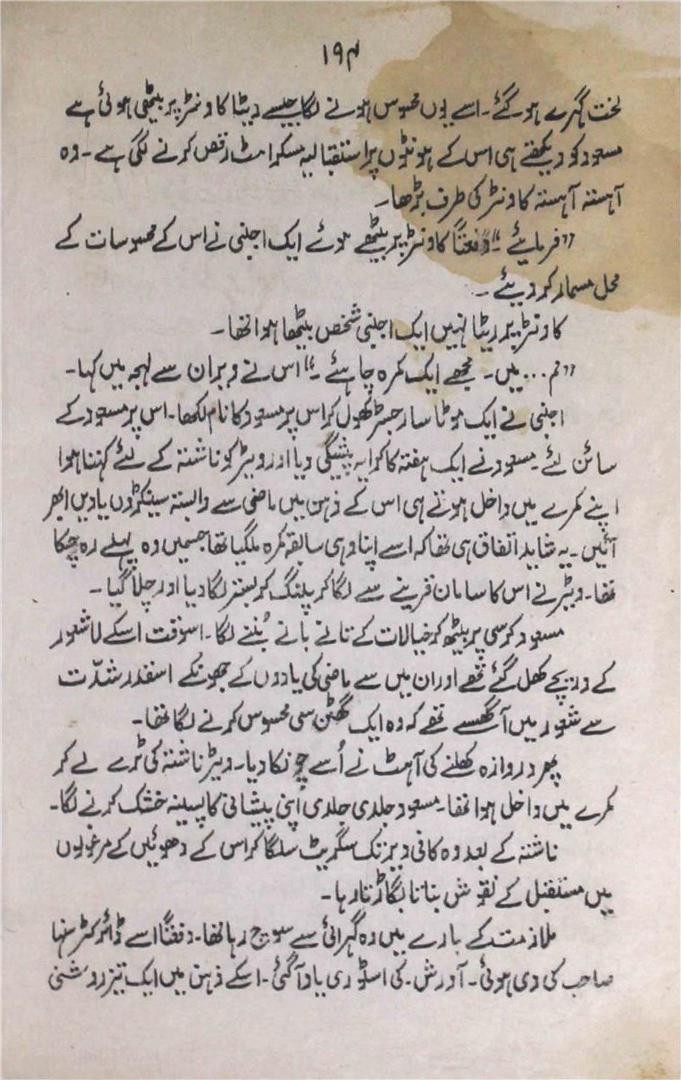 ۱۹۴
لخت گہرے ہو گئے۔ اسے یوں محسوس ہونے لگا جیسے ریٹا کاونٹر پر بیٹھی ہوئی ہے
مسعود کو دیکھتے ہی اس کے ہونٹوں پر استقبالیہ مسکراہٹ رقص کرنے لگی ہے۔ وہ
آہستہ آہستہ کاونٹر کی طرف بڑھا۔
”فرمایئے۔“ دفعتاً کاونٹر پر بیٹھے ہوئے ایک اجنبی نے اس کے محسوسات کے
محل مسمار کر دیئے۔
کاونٹر پر ریٹا نہیں ایک اجنبی شخص بیٹھا ہوا تھا۔
”م... میں۔ مجھے ایک کمرہ چاہئے۔“ اس نے ویران سے لہجہ میں کہا۔
اجنبی نے ایک موٹا سا رجسٹر کھول کر اس پر مسعود کا نام لکھا۔ اس پر مسعود کے
سائن لئے۔ مسعود نے ایک ہفتہ کا کرایہ پیشگی دیا اور ویٹر کو ناشتہ کے لئے کہتا ہوا
اپنے کمرے میں داخل ہوتے ہی اس کے ذہن میں ماضی سے وابستہ سینکڑوں یادیں ابھر
آئیں۔ یہ شاید اتفاق ہی تھا کہ اسے اپنا وہی سابقہ کمرہ ملگیا تھا جسمیں وہ پہلے رہ چکا
تھا۔ ویٹر نے اس کا سامان قرینے سے لگا کر پلنگ کر بستر لگا دیا اور چلا گیا۔
مسعود کرسی پر بیٹھ کر خیالات کے تانے بانے بُننے لگا۔ اسوقت اسکے لاشعور
کے دریچے کھل گئے تھے اور ان میں سے ماضی کی یادوں کے جھونکے اسقدر شدّت
سے شعور میں آ گھسے تھے کہ وہ ایک گھٹن سی محسوس کرنے لگا تھا۔
پھر دروازہ کھلنے کی آہٹ نے اُسے چونکا دیا۔ ویٹر ناشتہ کی ٹرے لے کر
کمرے میں داخل ہوا تھا۔ مسعود جلدی جلدی اپنی پیشانی کا پسینہ خشک کرنے لگا۔
ناشتہ کے بعد وہ کافی دیر تک سگریٹ سلگا کر اس کے دھوئیں کے مرغولوں
میں مستقبل کے نقوش بناتا بگاڑتا رہا۔
ملازمت کے بارے میں وہ گہرائی سے سوچ رہا تھا۔ دفعتاً اسے ڈائرکٹر سنہا
صاحب کی دی ہوئی۔ آدرش۔ کی اسٹوری یاد آ گئی۔ اسکے ذہن میں ایک تیز روشنی